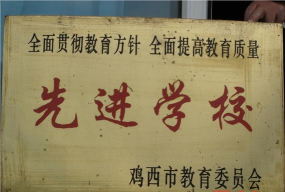 全面贯彻教育方针 全面提高教育质量
先进学校
鸡西市教育委员会